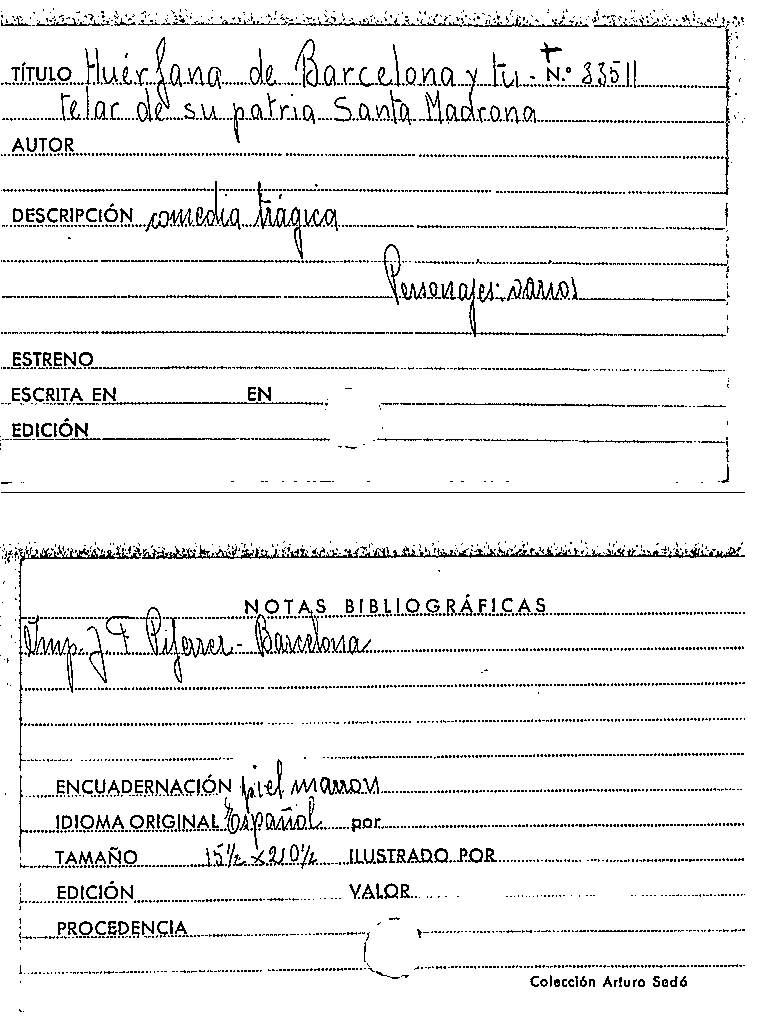 TÍTULO Huérfana de Barcelona y tu- N.º 33511
telar de su patria Santa Madrona
AUTOR
DESCRIPCIÓN comedia trágica
Personajes: varios
ESTRENO
ESCRITA EN EN
EDICIÓN
NOTAS BIBLIOGRÁFICAS
Imp. J. F. Piferrer - Barcelona
ENCUADERNACIÓN piel marron
IDIOMA ORIGINAL Español por
TAMAÑO 15½ x 210½ ILUSTRADO POR
EDICIÓN VALOR
PROCEDENCIA
Colección Arturo Sedó